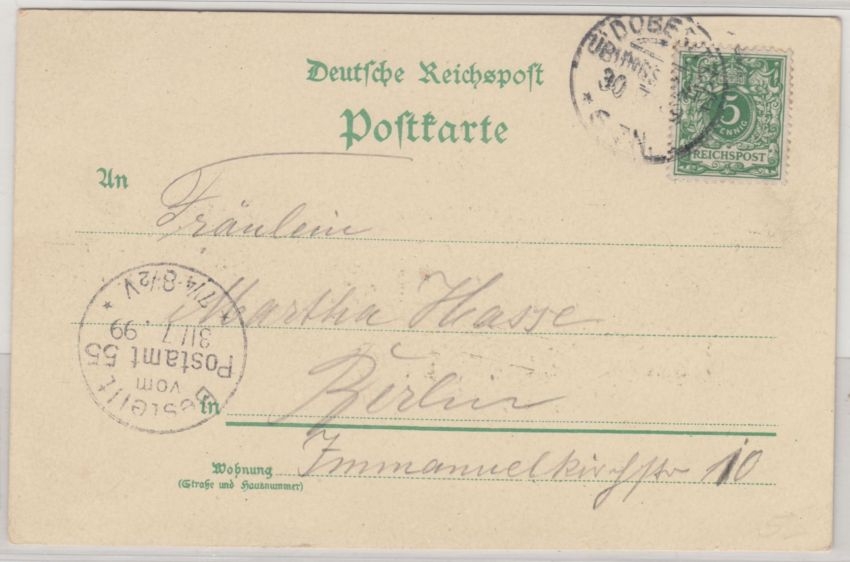 Deutsche Reichspost
Postkarte
DÖBE
ÜBUNGS
30
5
PFENNIG
REICHSPOST
An
Fräulein
Martha Hasse
in Berlin
Wohnung Immanuelkirchstr 10
(Straße und Hausnummer)
Bestellt
vom
Postamt 55
31/7.99
7¼-8½V.